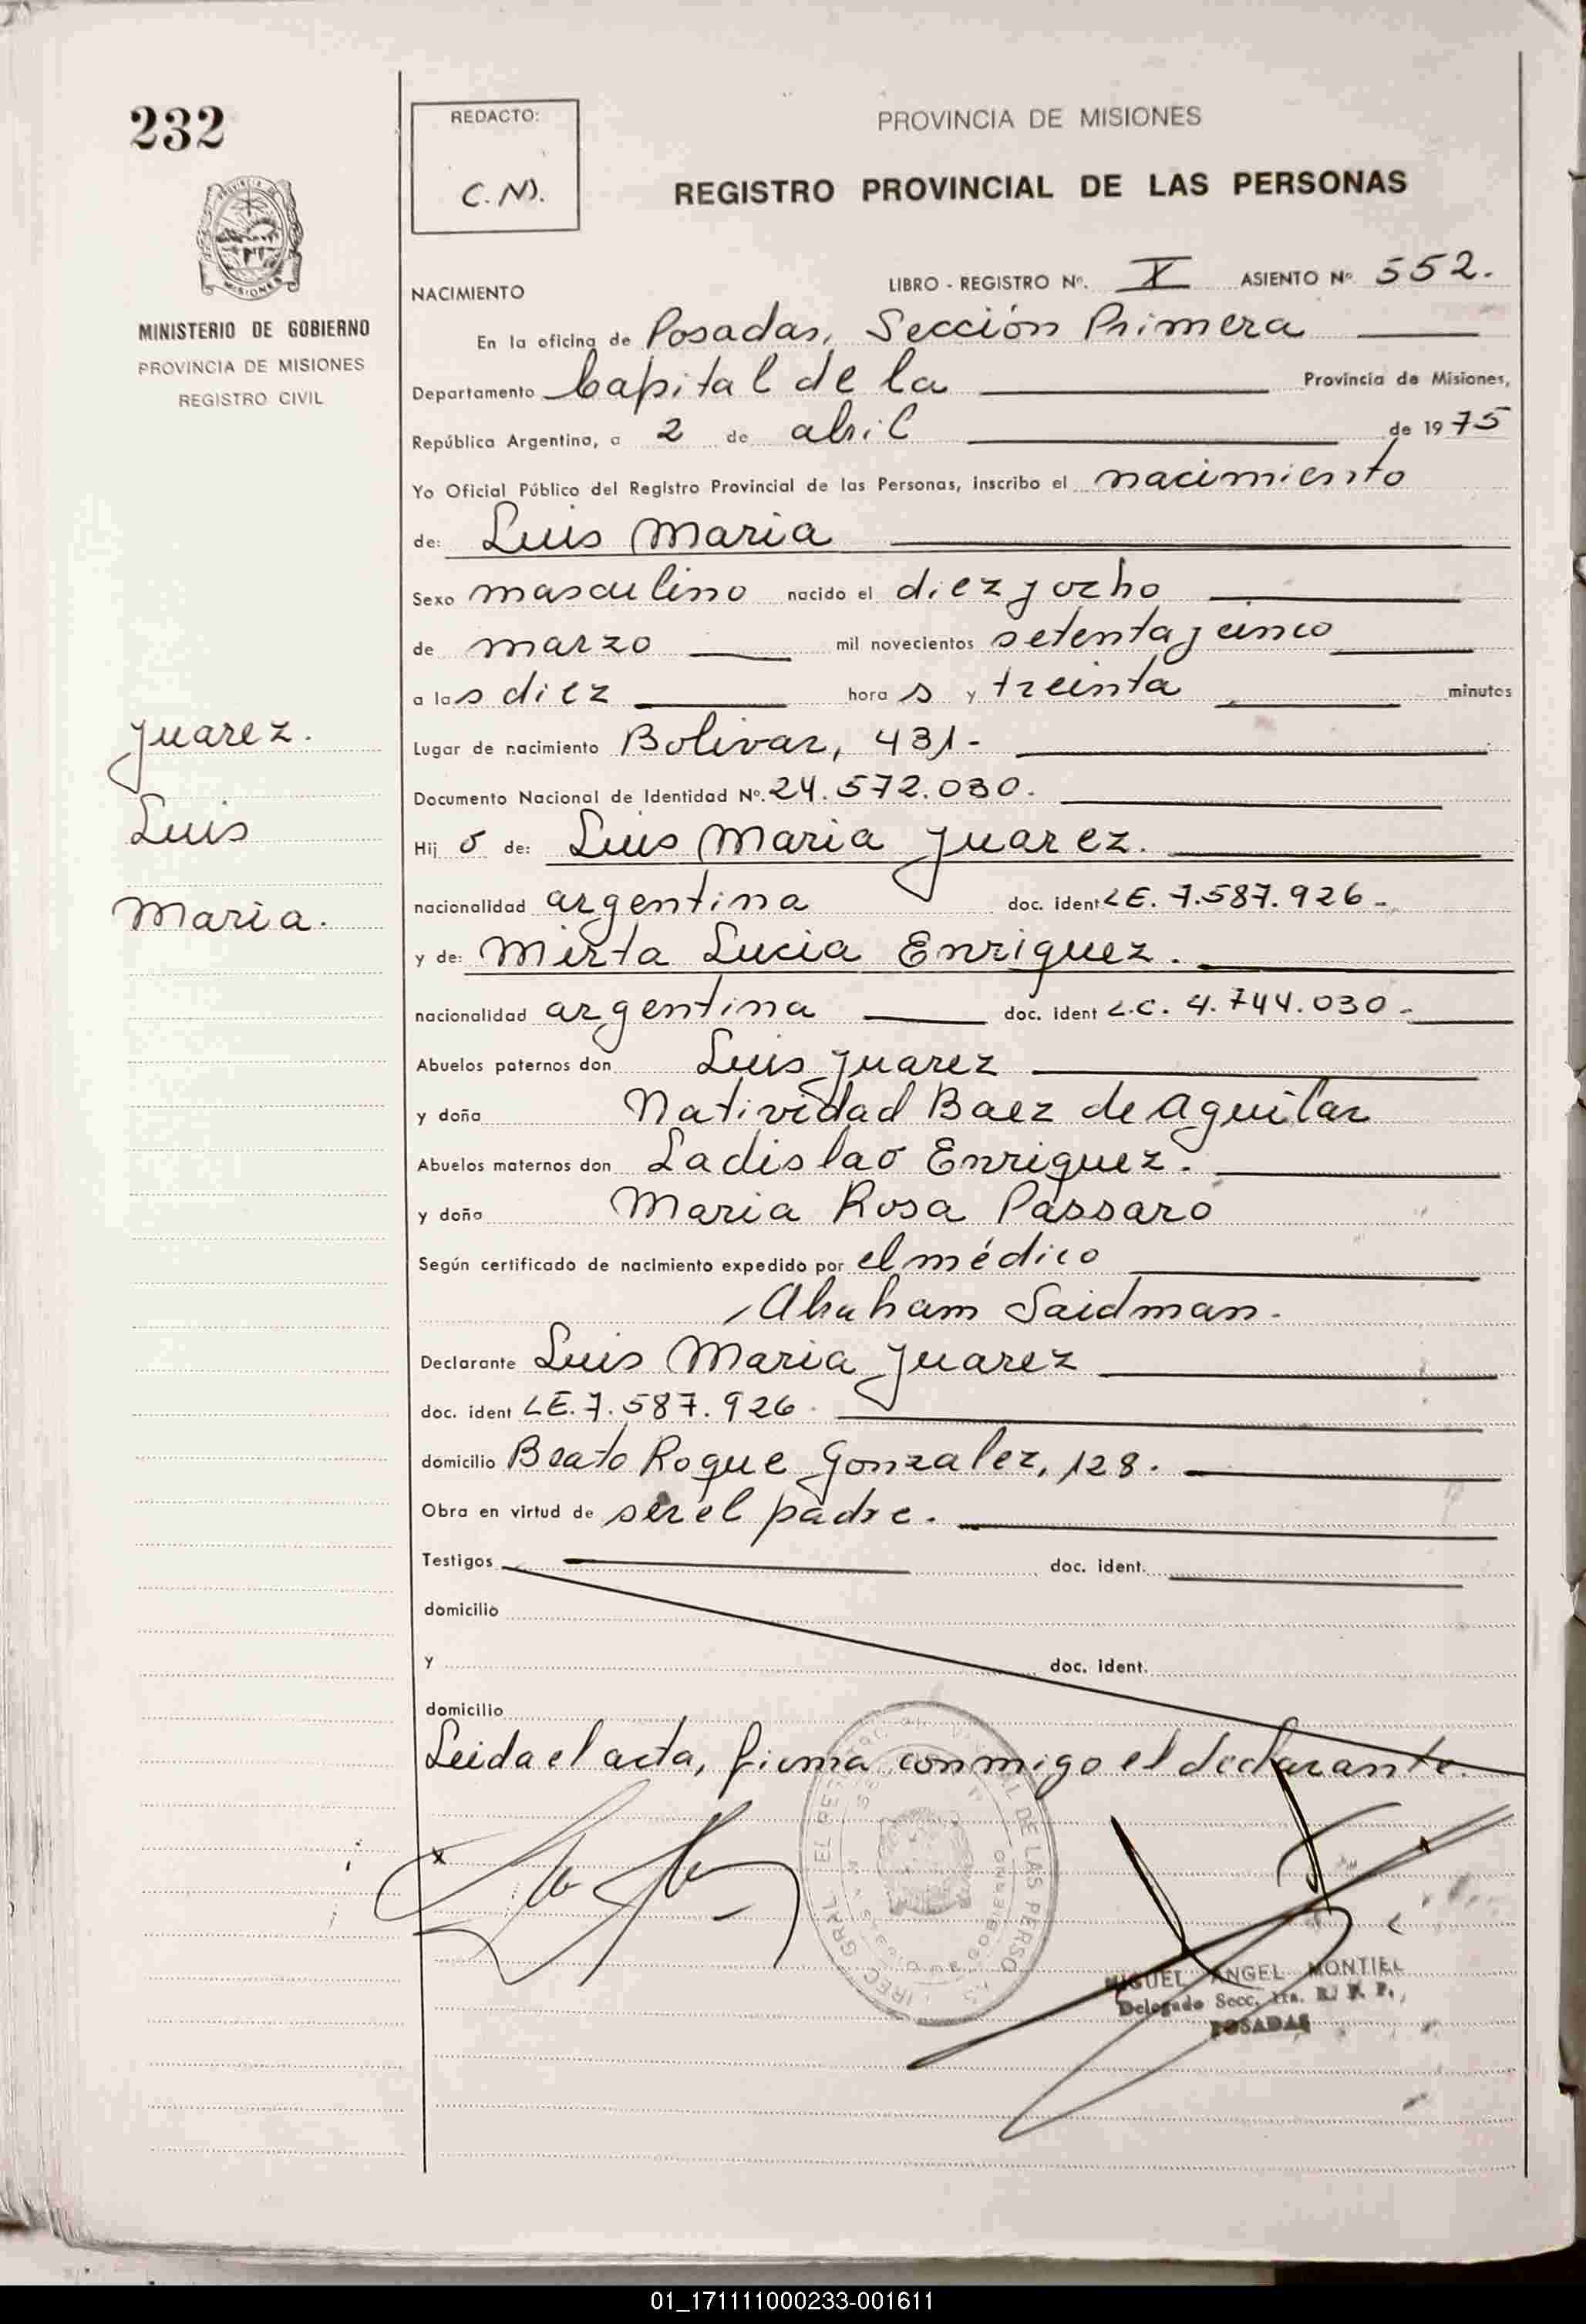 232
REDACTO:
C. N.
PROVINCIA DE MISIONES
REGISTRO PROVINCIAL DE LAS PERSONAS
MINISTERIO DE GOBIERNO
PROVINCIA DE MISIONES
REGISTRO CIVIL
NACIMIENTO LIBRO - REGISTRO Nº. X ASIENTO Nº 552.
En la oficina de Posadas, Sección Primera
Departamento Capital de la Provincia de Misiones,
República Argentina, a 2 de abril de 1975
Yo Oficial Público del Registro Provincial de las Personas, inscribo el nacimiento
de: Luis Maria
Sexo masculino nacido el diez y ocho
de marzo mil novecientos setenta y cinco
a las diez horas y treinta minutos
Juarez.
Luis
Maria.
Lugar de nacimiento Bolivar, 431-
Documento Nacional de Identidad Nº. 24.572.030.
Hijo de: Luis Maria Juarez.
nacionalidad argentina doc. ident LE. 7.587.926-
y de: Mirta Lucia Enriquez.
nacionalidad argentina doc. ident L.C. 4.744.030-
Abuelos paternos don Luis Juarez
y doña Natividad Baez de Aguilar
Abuelos maternos don Ladislao Enriquez.
y doña Maria Rosa Passaro
Según certificado de nacimiento expedido por el médico
Abraham Saidman.
Declarante Luis Maria Juarez
doc. ident LE. 7.587.926.
domicilio Beato Roque Gonzalez, 128.
Obra en virtud de ser el padre.
Testigos doc. ident.
domicilio
y doc. ident.
domicilio
Leida el acta, firma conmigo el declarante.
x
MIGUEL ANGEL MONTIEL
Delegado Secc. 1ra. R. P. P.,
POSADAS
01_171111000233-001611